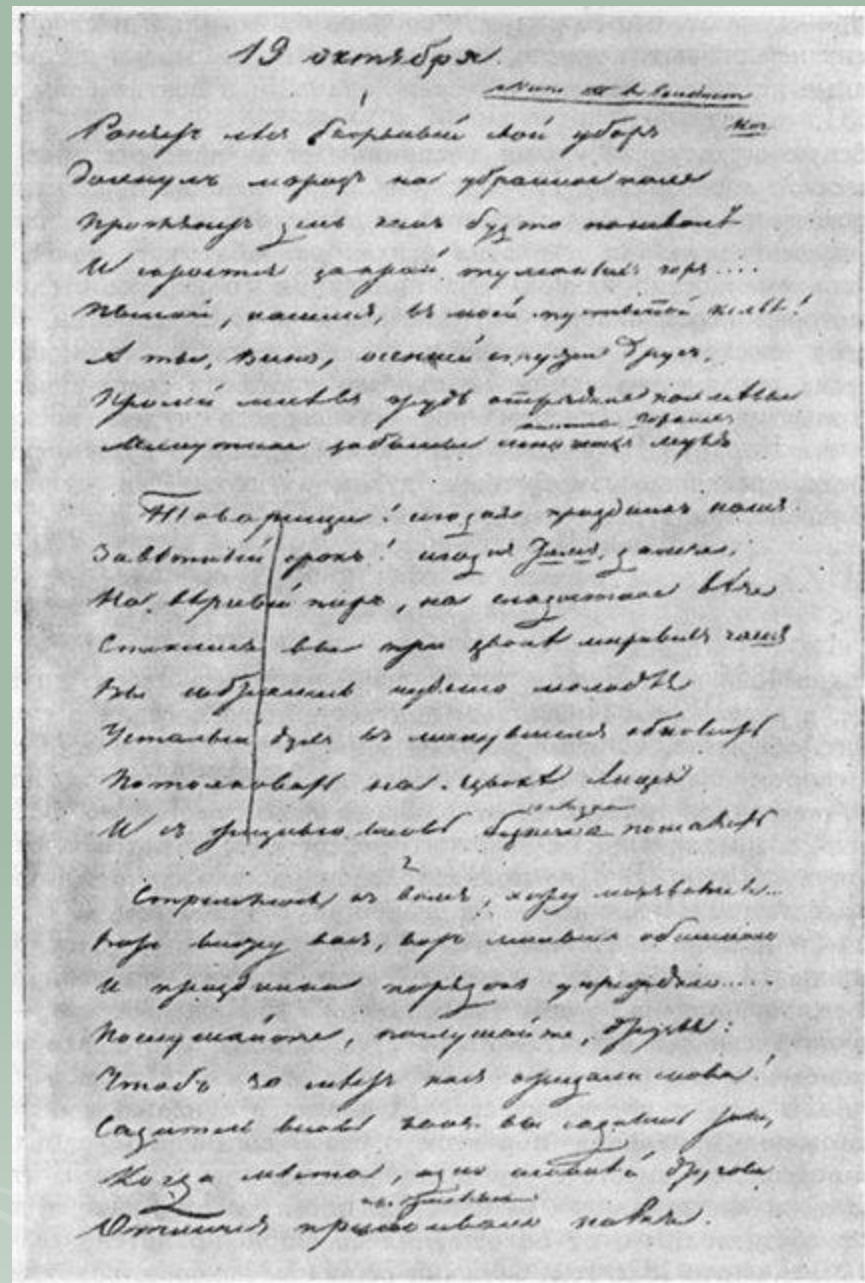 19 октября
Роняетъ лѣсъ багряный свой уборъ
Дохнулъ морозъ на убранное поле
Проглянетъ день какъ будто поневолѣ
И скроется за край туманныхъ горъ....
Пылай, каминъ, въ моей пустынной кельѣ!
А ты, вино, осенней стужи другъ,
Пролей мнѣ въ грудь отрадное похмѣлье
Минутное забвенье мукъ
Товарищи! сегодня праздникъ нашъ.
Завѣтный срокъ! сегодня тамъ, далече,
На пиръ, на сладостное вѣче
Стеклися вы при звонѣ мирныхъ чашъ
Вы собрались чудесно молодѣя
Усталый духъ въ минувшемъ обновить
Потолковать на языкѣ Лицея
И съ жизнью вновь пошалить
2
Стремлюся къ вамъ,
Вотъ вижу васъ, вотъ милыхъ обнимаю
И праздника порядокъ учреждаю....
Послушайте, послушайте, друзья:
Чтобъ 30 мѣстъ насъ ожидали снова!
Садитесь вновь какъ вы садились тамъ,
Когда мѣста,